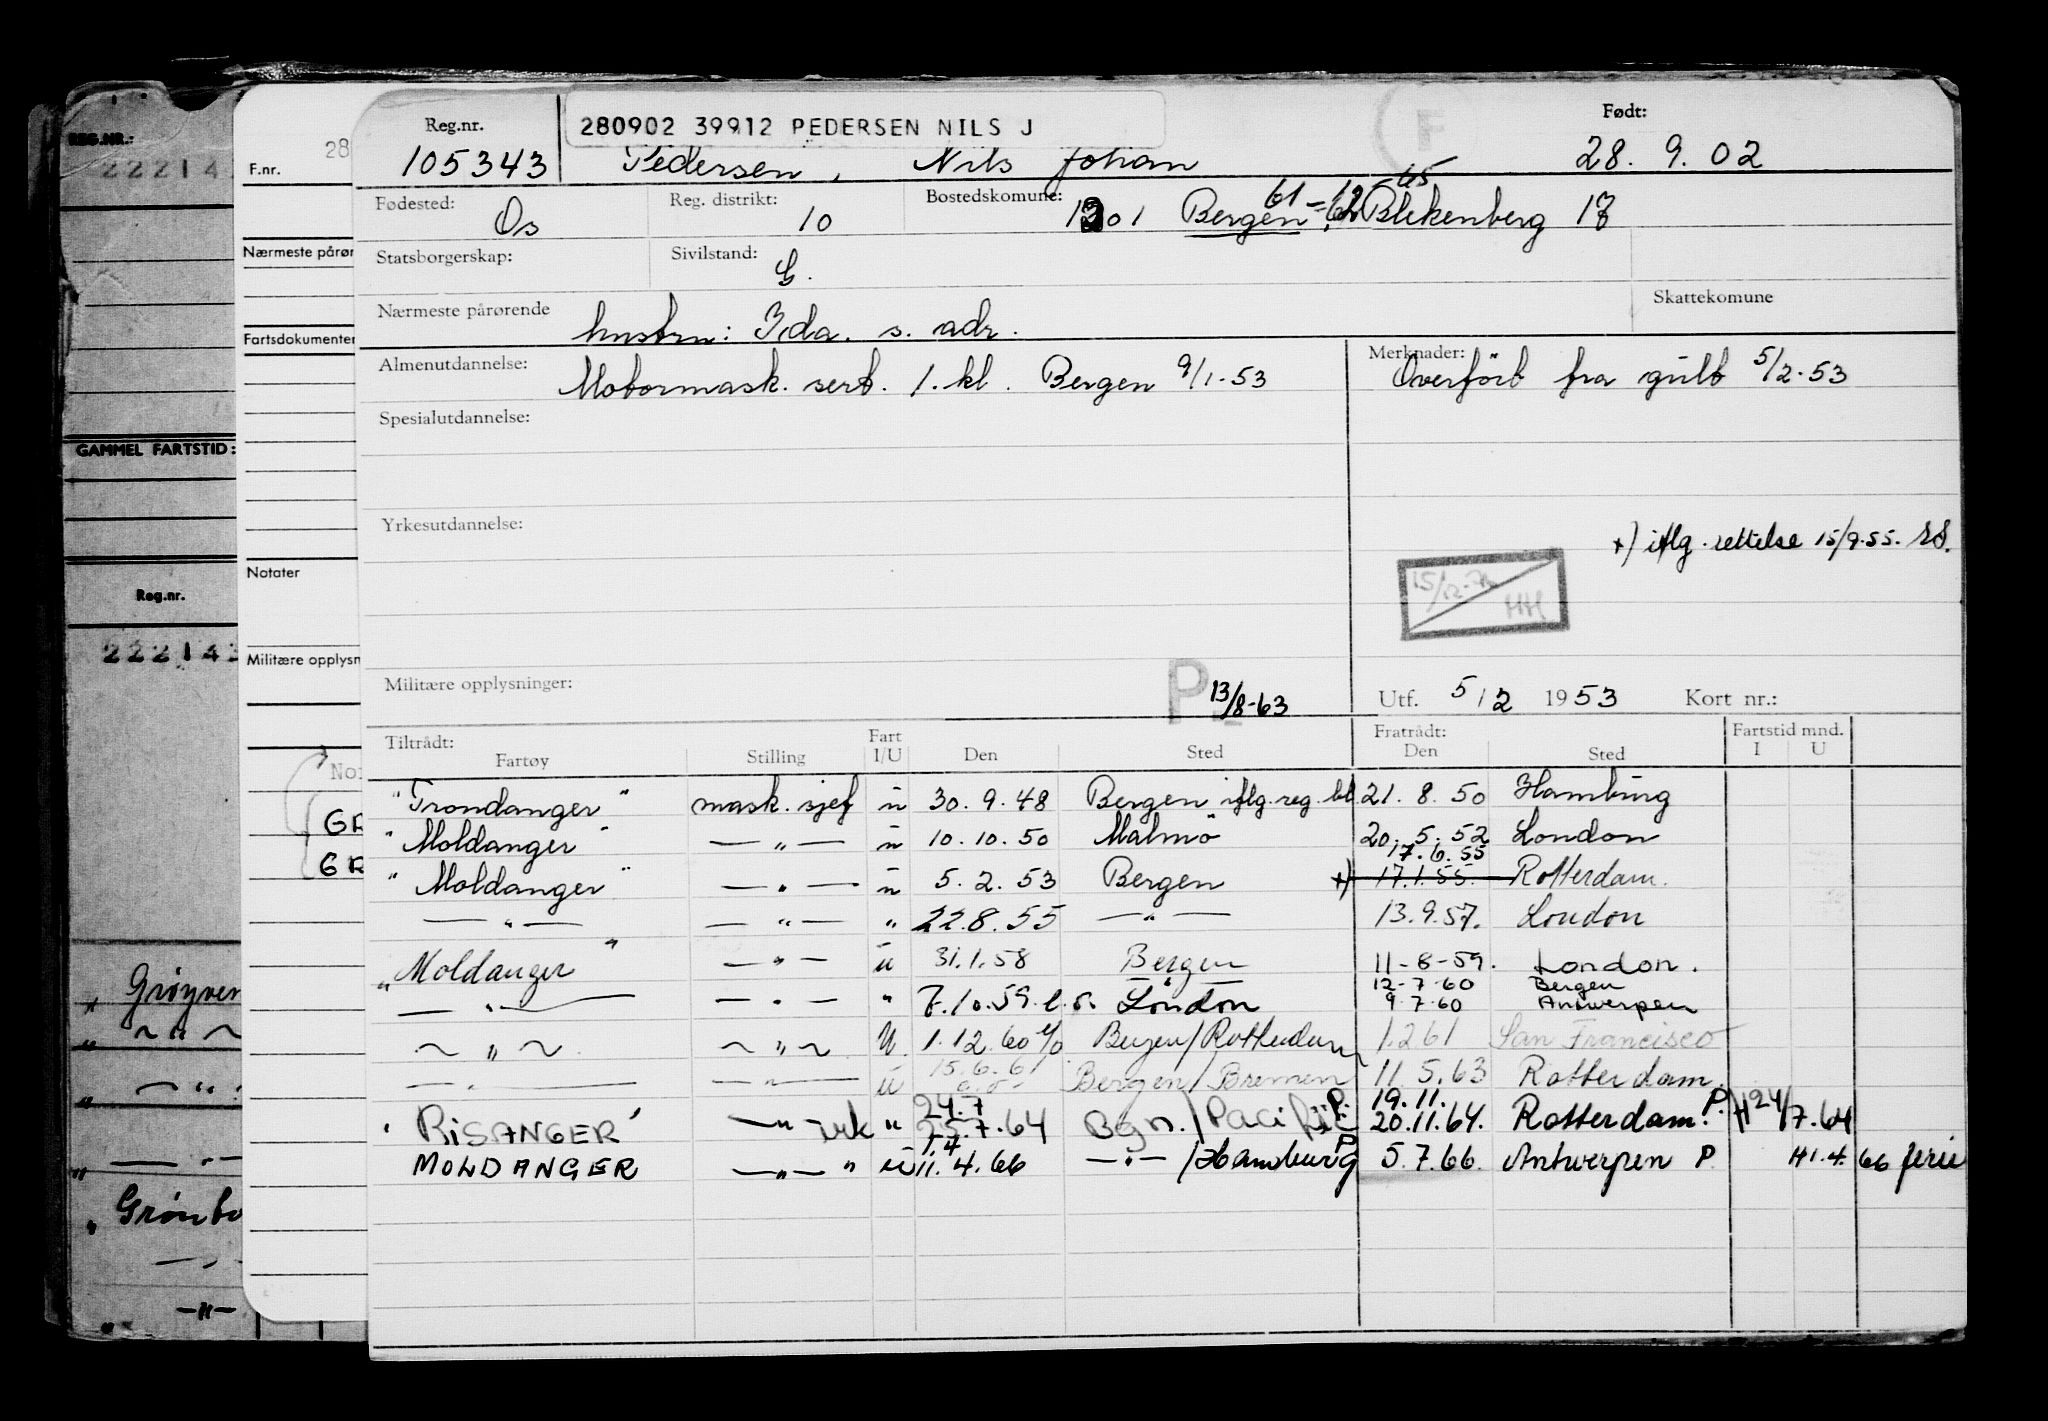 REG.NR.:
22214
GAMMEL FARTSTID:
Reg.nr.
22214
Grøyver
Grønbo
28
F.nr.
Nærmeste pårør
Fartsdokumenter
Notater
Militære opplysn
GR
GR
280902 39912 PEDERSEN NILS J
F
Reg.nr. 105343 Pedersen, Nils Johan Født: 28. 9. 02
Fødested: Os Reg. distrikt: 10 Bostedskomune: 1301 Bergen, Blekenberg 17
Statsborgerskap: Sivilstand: G.
Nærmeste pårørende hustru: Ida. s. adr. Skattekomune
Almenutdannelse: Motormask. sert. 1. kl. Bergen 9/1-53 Merknader: Overført fra gult 5/2-53
Spesialutdannelse:
Yrkesutdannelse: x) iflg. rettelse 15/9-55. RS.
HH
Militære opplysninger: P 13/8-63 Utf. 5/2 1953 Kort nr.:
Tiltrådt: Fratrådt: Fartstid mnd.
Fartøy Stilling Fart I/U Den Sted Den Sted I U
"Trondanger" mask. sjef u 30. 9. 48 Bergen iflg. reg. bl. 21. 8. 50 Hamburg
"Moldanger" — " — u 10. 10. 50 Malmö 20. 5. 52 London
"Moldanger" — " — u 5. 2. 53 Bergen x) 17.1.55. 17.6.55 Rotterdam.
— " — — " — " 22.8.55 — " — 13.9.57. London
"Moldanger" — " — u 31.1.58 Bergen 11-8-59. London.
— " — — " — " 7.10.59 London 12-7-60 Bergen
9.7.60 Antwerpen
~ " ~ ~ " ~ U. 1.12.60 Bergen/Rotterdam 1.2.61 San Francisco
— " — — " — u 15.6.61 Bergen/Bremen 11.5.63 Rotterdam.
"RISANGER" — " — " 24.7 25.7.64 Bgn./Pacific P. 19.11. 20.11.64. Rotterdam. P. H 24/7.64
MOLDANGER — " — " u 1.4 11.4.66 — " — /Hamburg P 5.7.66. Antwerpen P. H 1.4.66 ferie